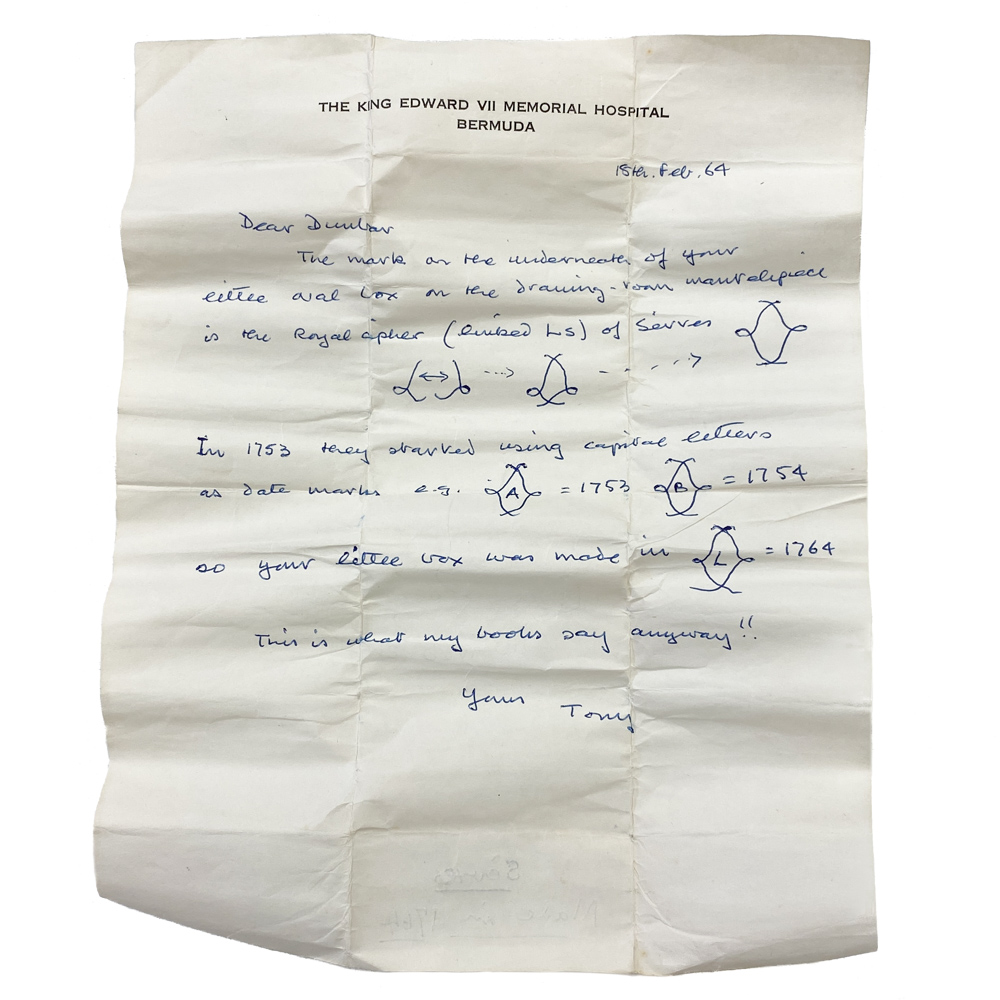 THE KING EDWARD VII MEMORIAL HOSPITAL
BERMUDA
18th. Feb. 64
Dear Dunbar
The mark on the underneath of your
little oval box on the drawing-room mantelpiece
is the Royal cipher (linked Ls) of Sèvres
In 1753 they started using capital letters
as date marks e.g. A = 1753 B = 1754
so your little box was made in L = 1764
This is what my books say anyway!!
Yours Tony
Sèvres
Made in 1764